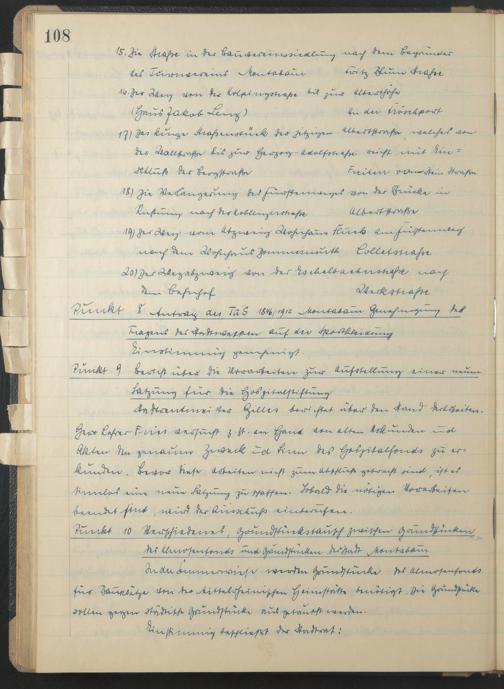 108
15. Die Straße in der Bauvereinssiedlung nach dem Begründer
des Turnvereins Montabaur Fritz Straße
16. Der Weg von der Kolpingstraße bis zur Alberthöhe
(Haus Jakob Lenz) An der
17) Das kurze Straßenstück der jetzigen Albertstraße welches von
der Wallstraße bis zur Herzog-Adolfstraße reicht mit Ein=
schluß der Bergstraße Freiherr vom Stein Straße
18) Die Verlängerung des Fürstenweges von der Brücke in
Richtung nach der Koblenzerstraße Albertstraße
19) Der Weg vom Abzweig Wohnhaus Flink am Fürstenweg
nach dem Wohnhaus Straße
20) Der Wegabzweig von der Eschelbacherstraße nach
dem Bahnhof Werkstraße
Punkt 8 Antrag des TuS 1846/1912 Montabaur Genehmigung des
Tragens des Stadtwappens auf der Sportkleidung
Einstimmig genehmigt.
Punkt 9 Bericht über die Vorarbeiten zur Aufstellung einer neuen
Satzung für die Hospitalstiftung
Stadtrentmeister Gilles berichtet über den Stand der Arbeiten.
Herr Lehrer Fries versucht z. Zt. an Hand von alten Urkunden und
Akten den genauen Zweck und Sinn des Hospitalfonds zu er-
kunden. Bevor diese Arbeiten nicht zum Abschluß gebracht sind, ist es
sinnlos eine neue Satzung zu schaffen. Sobald die nötigen Vorarbeiten
beendet sind, wird der Ausschuß einberufen.
Punkt 10 Verschiedenes, Grundstückstausch zwischen Grundstücken
des Almosenfonds und Grundstücken der Stadt Montabaur
In der Sommerwiese werden Grundstücke des Almosenfonds
für Bauplätze von der Mittelrheinischen Heimstätte benötigt. Die Grundstücke
sollen gegen städtische Grundstücke ausgetauscht werden.
Einstimmig beschließt der Stadtrat: